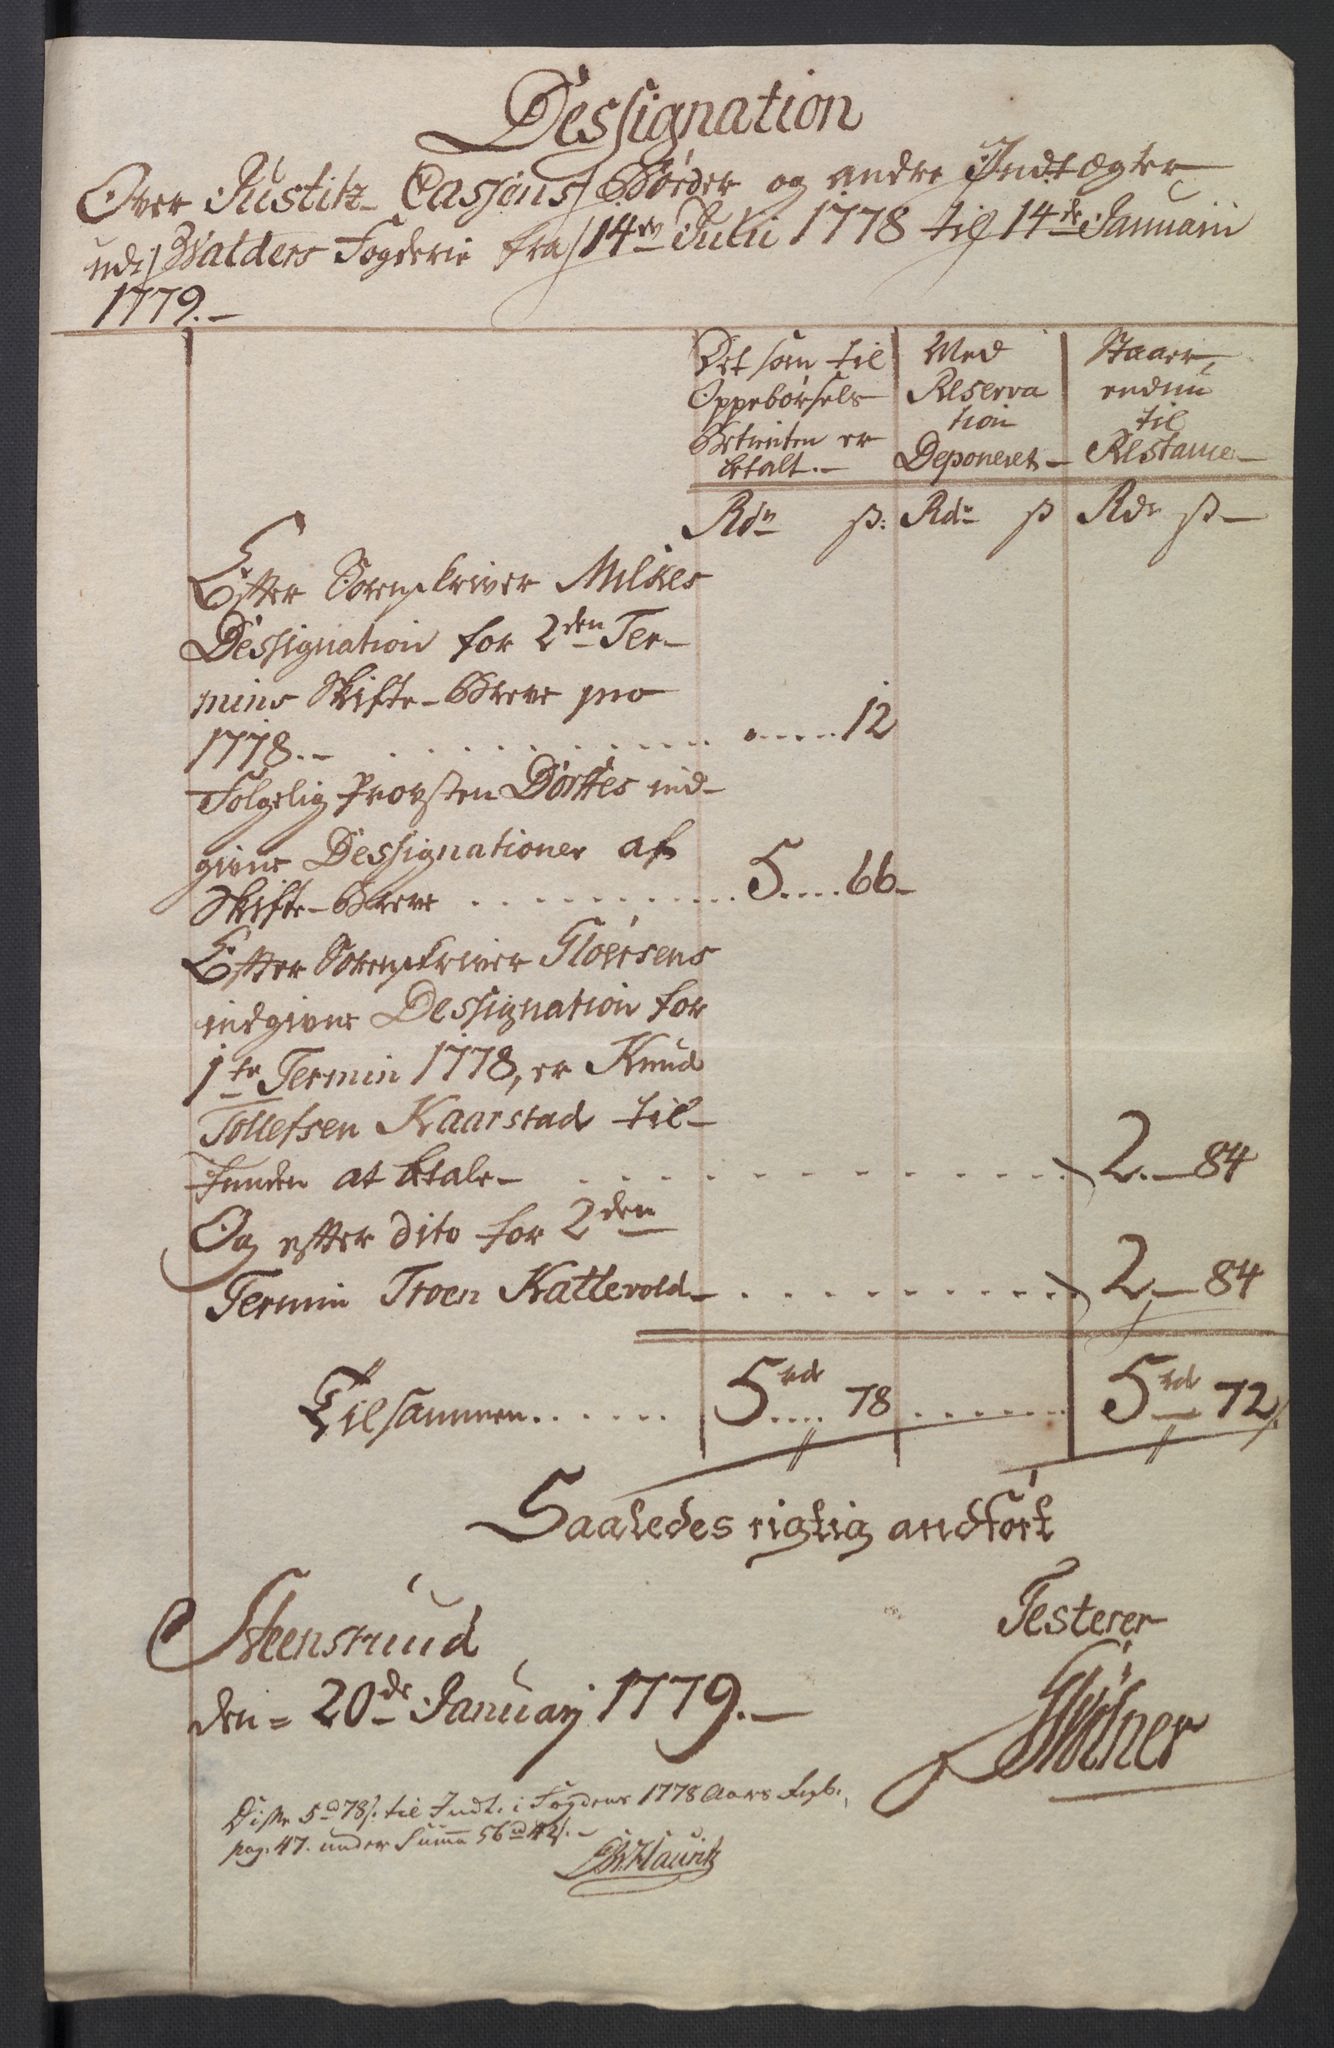 Dessignation
Over Justitz Cassens Bøeder og andre Indtægter
udi Walders Fogderie fra 14de Julii 1778 til 14de Januarii
1779.-
Det som til Med Staaer
Oppebørsels Reserva endnu
Betienten er tion til
betalt.- Deponeret- Restance-
Rdr ß: Rdr ß Rdr ß-
Efter Sorenskriver Milses
Dessignation for 2den Ter-
mins Skifte-Breve pro
1778.- .......... 12
Følgelig Provsten Dorffes ind-
givne Dessignationer af
Skifte-Breve .......... 5.... 66-
Efter Sorenskriver Gloersens
indgivne Dessignation for
1te Termin 1778, er Knud
Tollefsen Kaarstad til-
funden at betale- .......... 2.-84
Og efter dito for 2den
Termin Troen Kattevold- .......... 2.-84
Tilsammen...... 5rd.... 78 ...... 5rd 72/.
Saaledes rigtig andført
Steenstruud Testerer
den= 20de Januarj 1779.-
Disse 5 d 78 s. til Indt. i Fogdens 1778 Aars Regb.,
pag. 47. under Summa 56 d 42 s.-